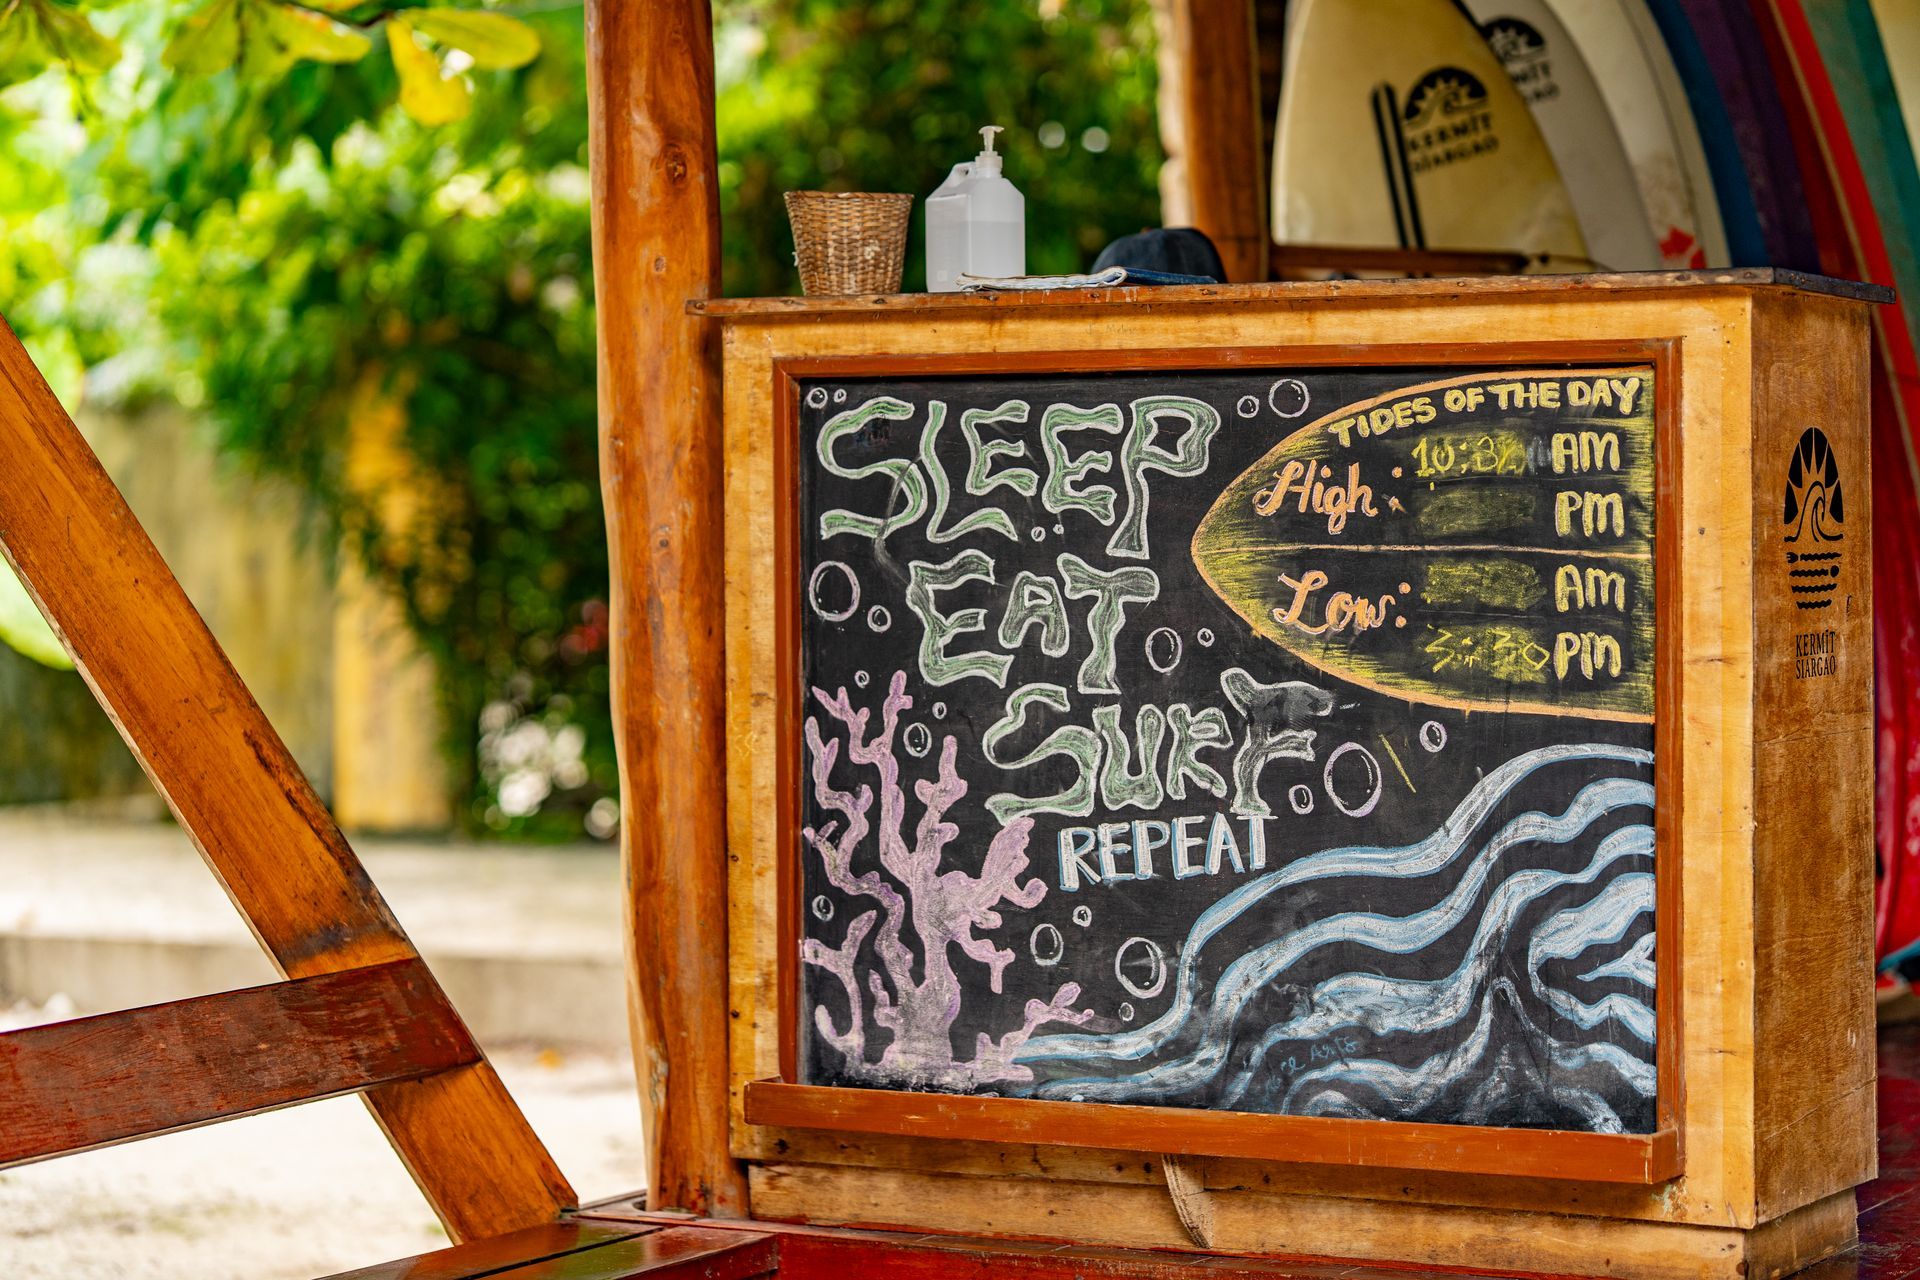 SLEEP
EAT
SURF
REPEAT
TIDES OF THE DAY
High: 10:32 AM
PM
Low: AM
3:30 PM
KERMIT
SIARGAO
KERMIT
SIARGAO
KERMIT
SIARGAO